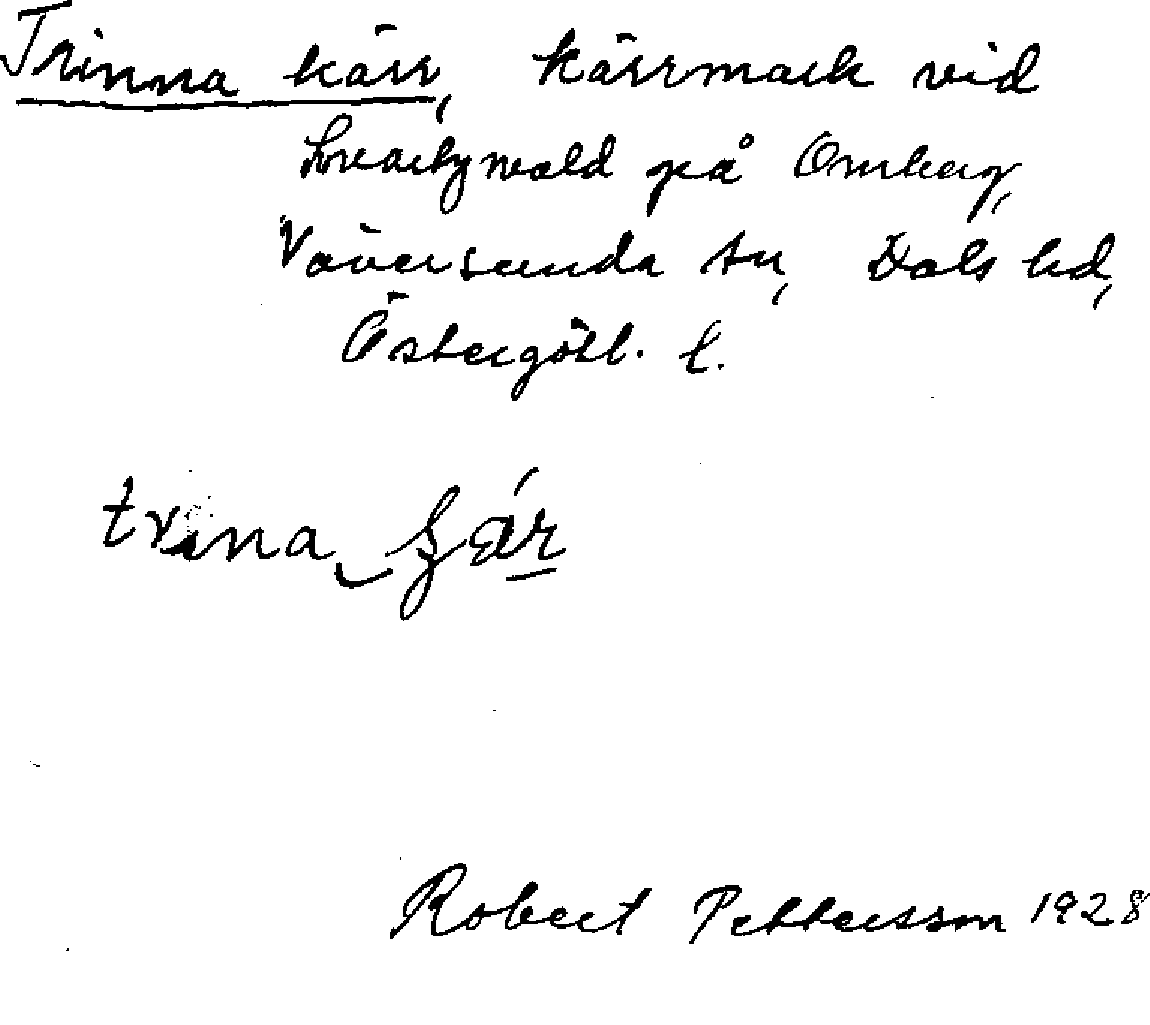 Trinna kärr, kärrmark vid
på Omberg,
Väversunda sn, Dals hd,
Östergötl. l.
Robert Pettersson 1928